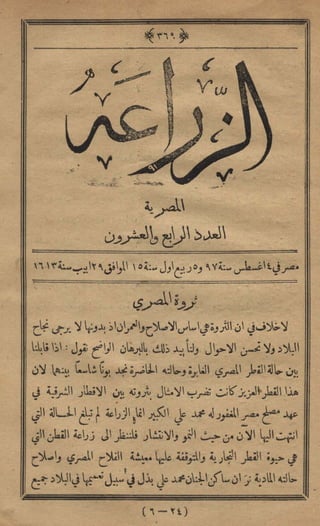 ٣٦٩
الزراعة
المصرية
العدد الرابع والعشرون
مصر في ٤ اغسطس سنة ٩٧ و٥ ربيع اول سنة ١٥ الموافق ٢٩ ابيب سنة ١٦١٣
ثروة المصري
لا خلاف في ان الثروة هي اساس الاصلاح والعمران اذ بدونها لا يرجى نجاح
البلاد ولا تحسن الاحوال ولتأييد ذلك بالبرهان الواضح نقول: اذا قابلنا
بين حالة القطر المصري الغابرة وحالته الحاضرة نجد بونًا شاسعًا بينهما لان
هذا القطر العزيز كانت تضرب الامثال بثروته بين الاقطار الشرقية في
عهد مصلح مصر المغفور له محمد علي الكبير انما الزراعة لم تبلغ الحالة التي
انتهت اليها الآن من حيث النمو والانتشار فلننظر الى زراعة القطن التي
هي حيوة القطر التجارية والمتوقفة عليها معيشة الفلاح المصري واصلاح
حالته المادية نر ان ساكن الجنان محمد علي بذل في سبيل تعميمها في البلاد جميع
(٢٤ — ٦)